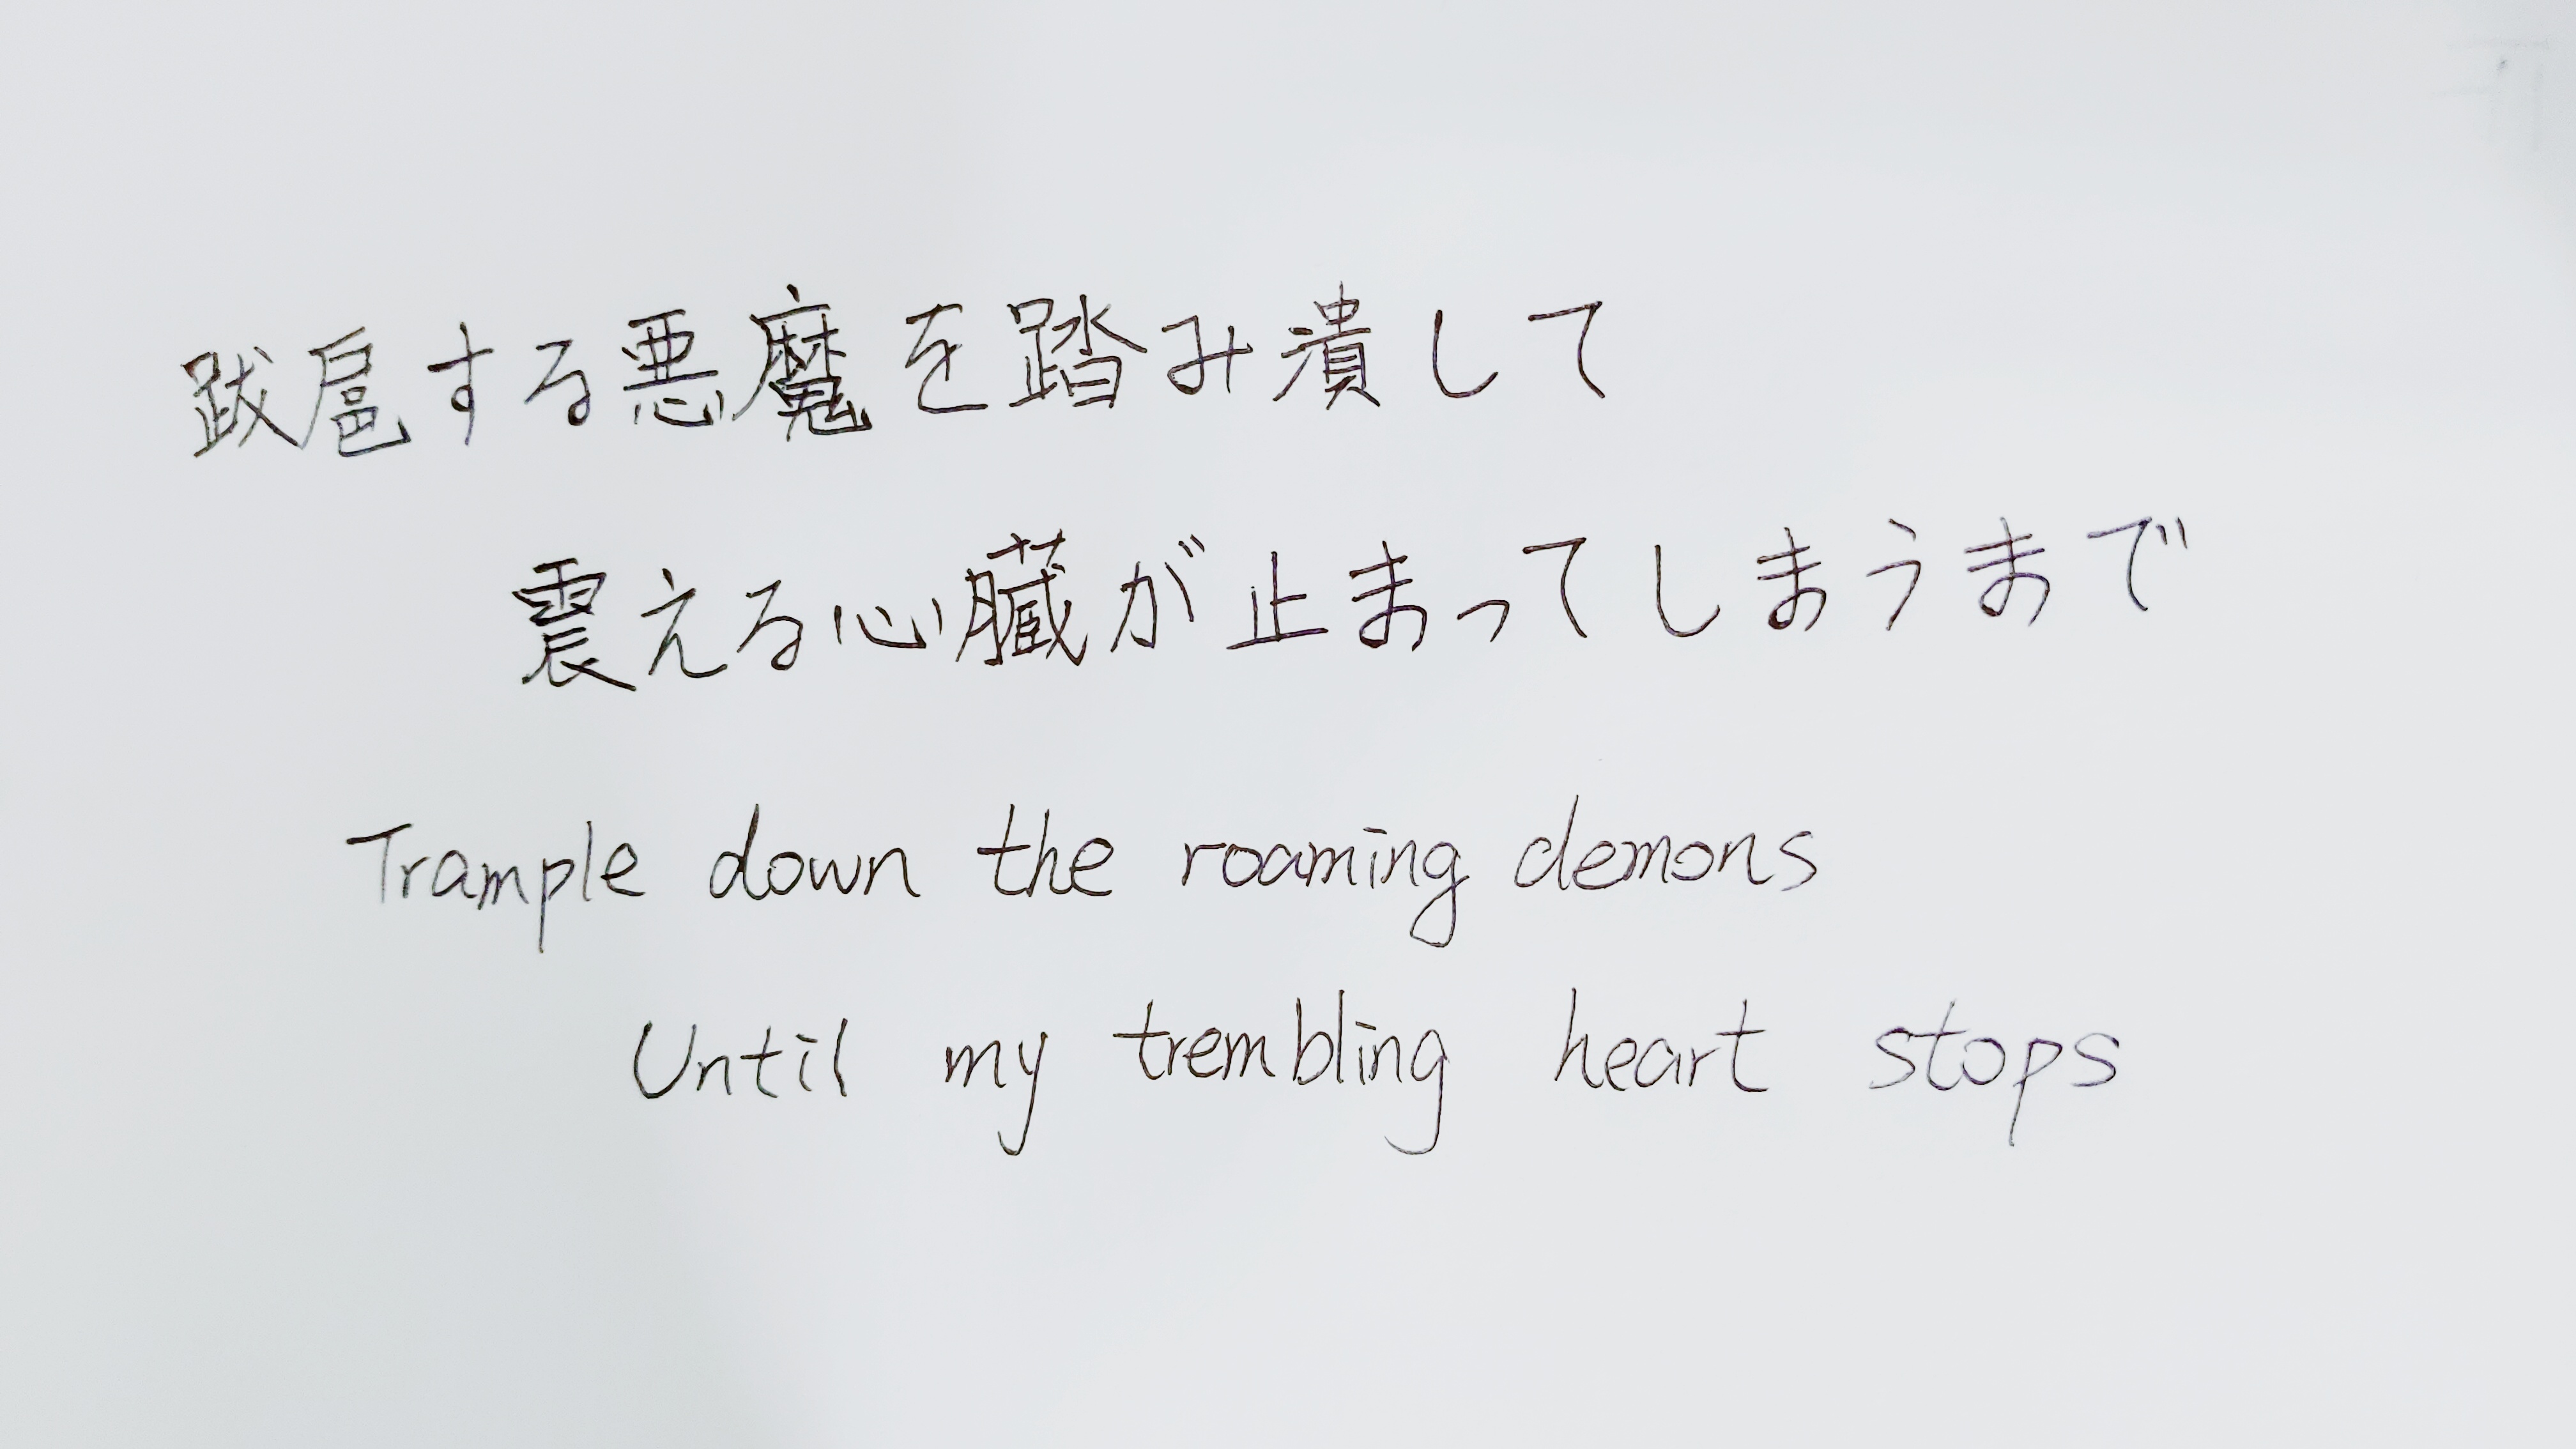 跋扈する悪魔を踏み潰して
震える心臓が止まってしまうまで
Trample down the roaming demons
Until my trembling heart stops